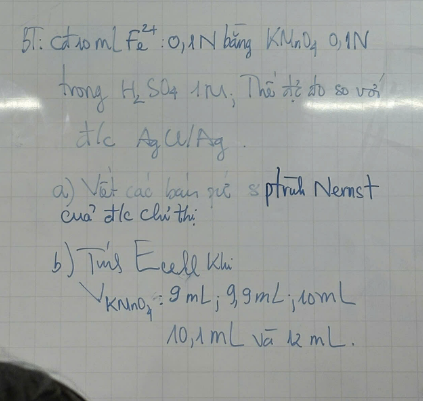 BT: Cđ 10 mL Fe²⁺ 0,1N bằng KMnO₄ 0,1N
trong H₂SO₄ 1M; Thế đc đo so với
đ/c AgCl/Ag.
a) Viết các bán pứ s ptrình Nernst
của đ/c chỉ thị
b) Tính Ecell khi
V KMnO₄ : 9 mL; 9,9 mL; 10 mL
10,1 mL và 12 mL.